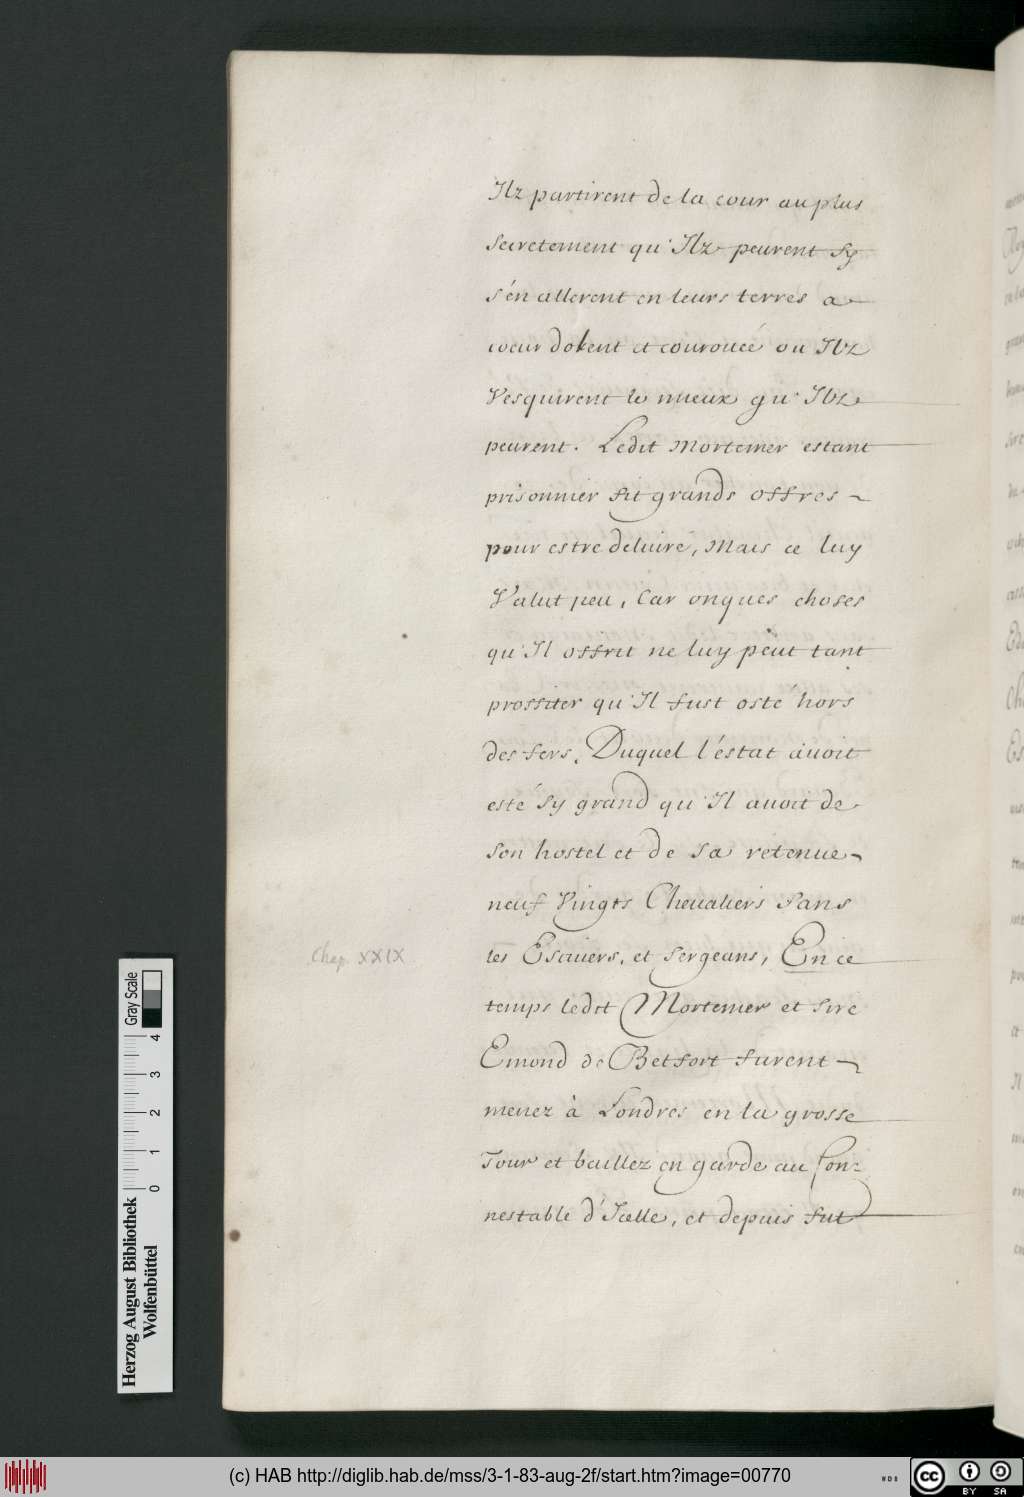 Ilz partirent de la cour au plus
secretement qu'Ilz peurent sy
s'én allerent en leurs terres a
coeur dolent et courouée ou Ilz
Vesquirent le mieux qu'Ilz
peurent. Ledit Mortemer estant
prisonnier fit grands offres
pour estre deliuré, Mais ce luy
Valut peu, Car onques choses
qu'Il offrit ne luy peut tant
proffiter qu'Il fust osté hors
des fers. Duquel l'éstat auoit
esté sy grand qu'Il auoit de
son hostel et de sa retenue
neuf Vingts Cheualiers sans
Chap. XXIX
les Escuiers, et sergeans, En ce
temps ledit Mortemer et sire
Emond de Betfort furent
menez à Londres en la grosse
Tour et baillez en garde au Con=
nestable d'Icelle, et depuis fut
Herzog August Bibliothek
Wolfenbüttel
0 1 2 3 4
Gray Scale
(c) HAB http://diglib.hab.de/mss/3-1-83-aug-2f/start.htm?image=00770
cc BY SA